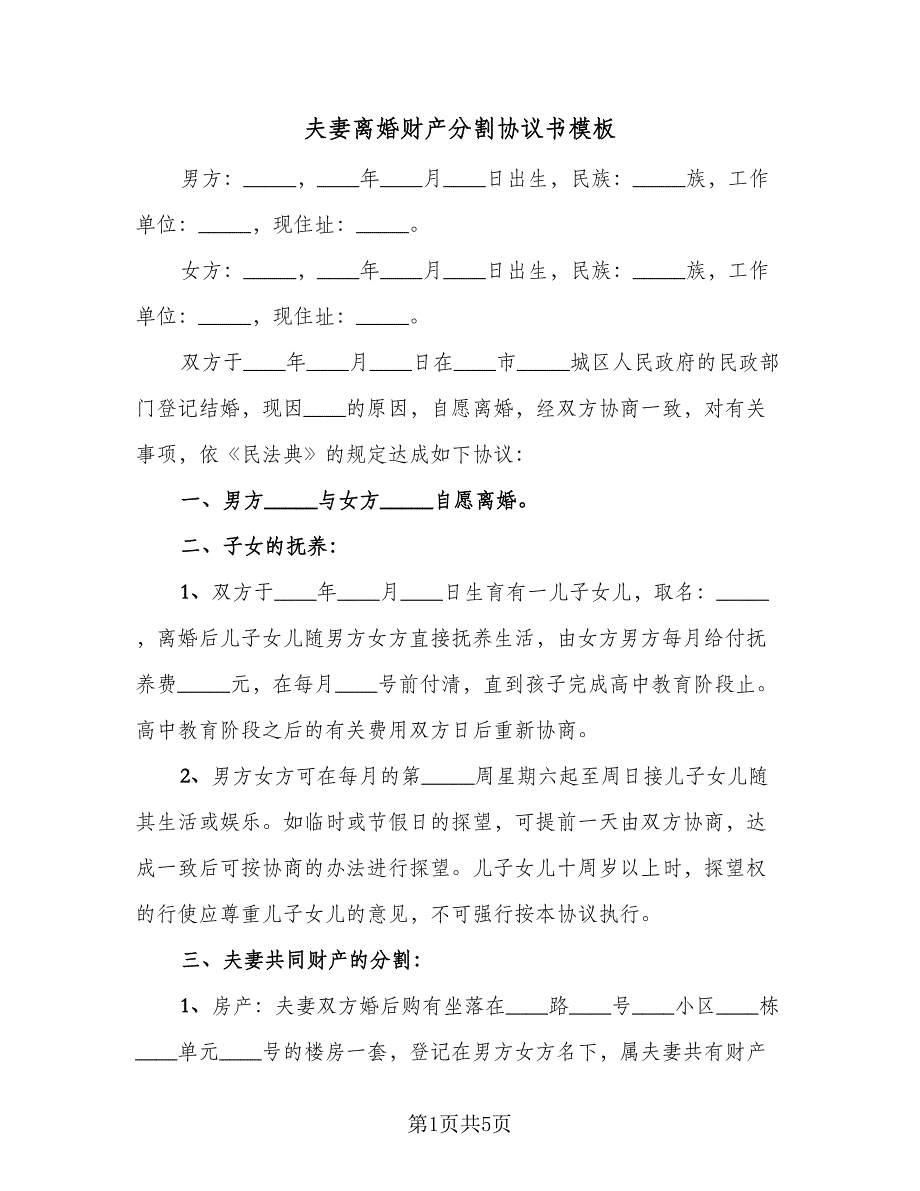 夫妻离婚财产分割协议书模板
男方：_____，____年____月____日出生，民族：_____族，工作
单位：_____，现住址：_____。
女方：_____，____年____月____日出生，民族：_____族，工作
单位：_____，现住址：_____。
双方于____年____月____日在____市_____城区人民政府的民政部
门登记结婚，现因____的原因，自愿离婚，经双方协商一致，对有关
事项，依《民法典》的规定达成如下协议：
一、男方_____与女方_____自愿离婚。
二、子女的抚养：
1、双方于____年____月____日生育有一儿子女儿，取名：_____
，离婚后儿子女儿随男方女方直接抚养生活，由女方男方每月给付抚
养费_____元，在每月____号前付清，直到孩子完成高中教育阶段止。
高中教育阶段之后的有关费用双方日后重新协商。
2、男方女方可在每月的第_____周星期六起至周日接儿子女儿随
其生活或娱乐。如临时或节假日的探望，可提前一天由双方协商，达
成一致后可按协商的办法进行探望。儿子女儿十周岁以上时，探望权
的行使应尊重儿子女儿的意见，不可强行按本协议执行。
三、夫妻共同财产的分割：
1、房产：夫妻双方婚后购有坐落在____路____号____小区____栋
____单元____号的楼房一套，登记在男方女方名下，属夫妻共有财产
第1页共5页